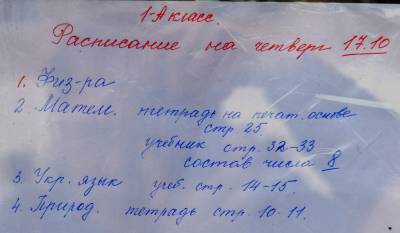 1-А класс.
Расписание на четверг 17.10
1. Физ-ра
2. Матем. тетрадь на печат. основе
стр. 25.
учебник стр. 32-33
состав числа 8
3. Укр. язык уч. стр. 14-15.
4. Природ. тетрадь стр. 10-11.